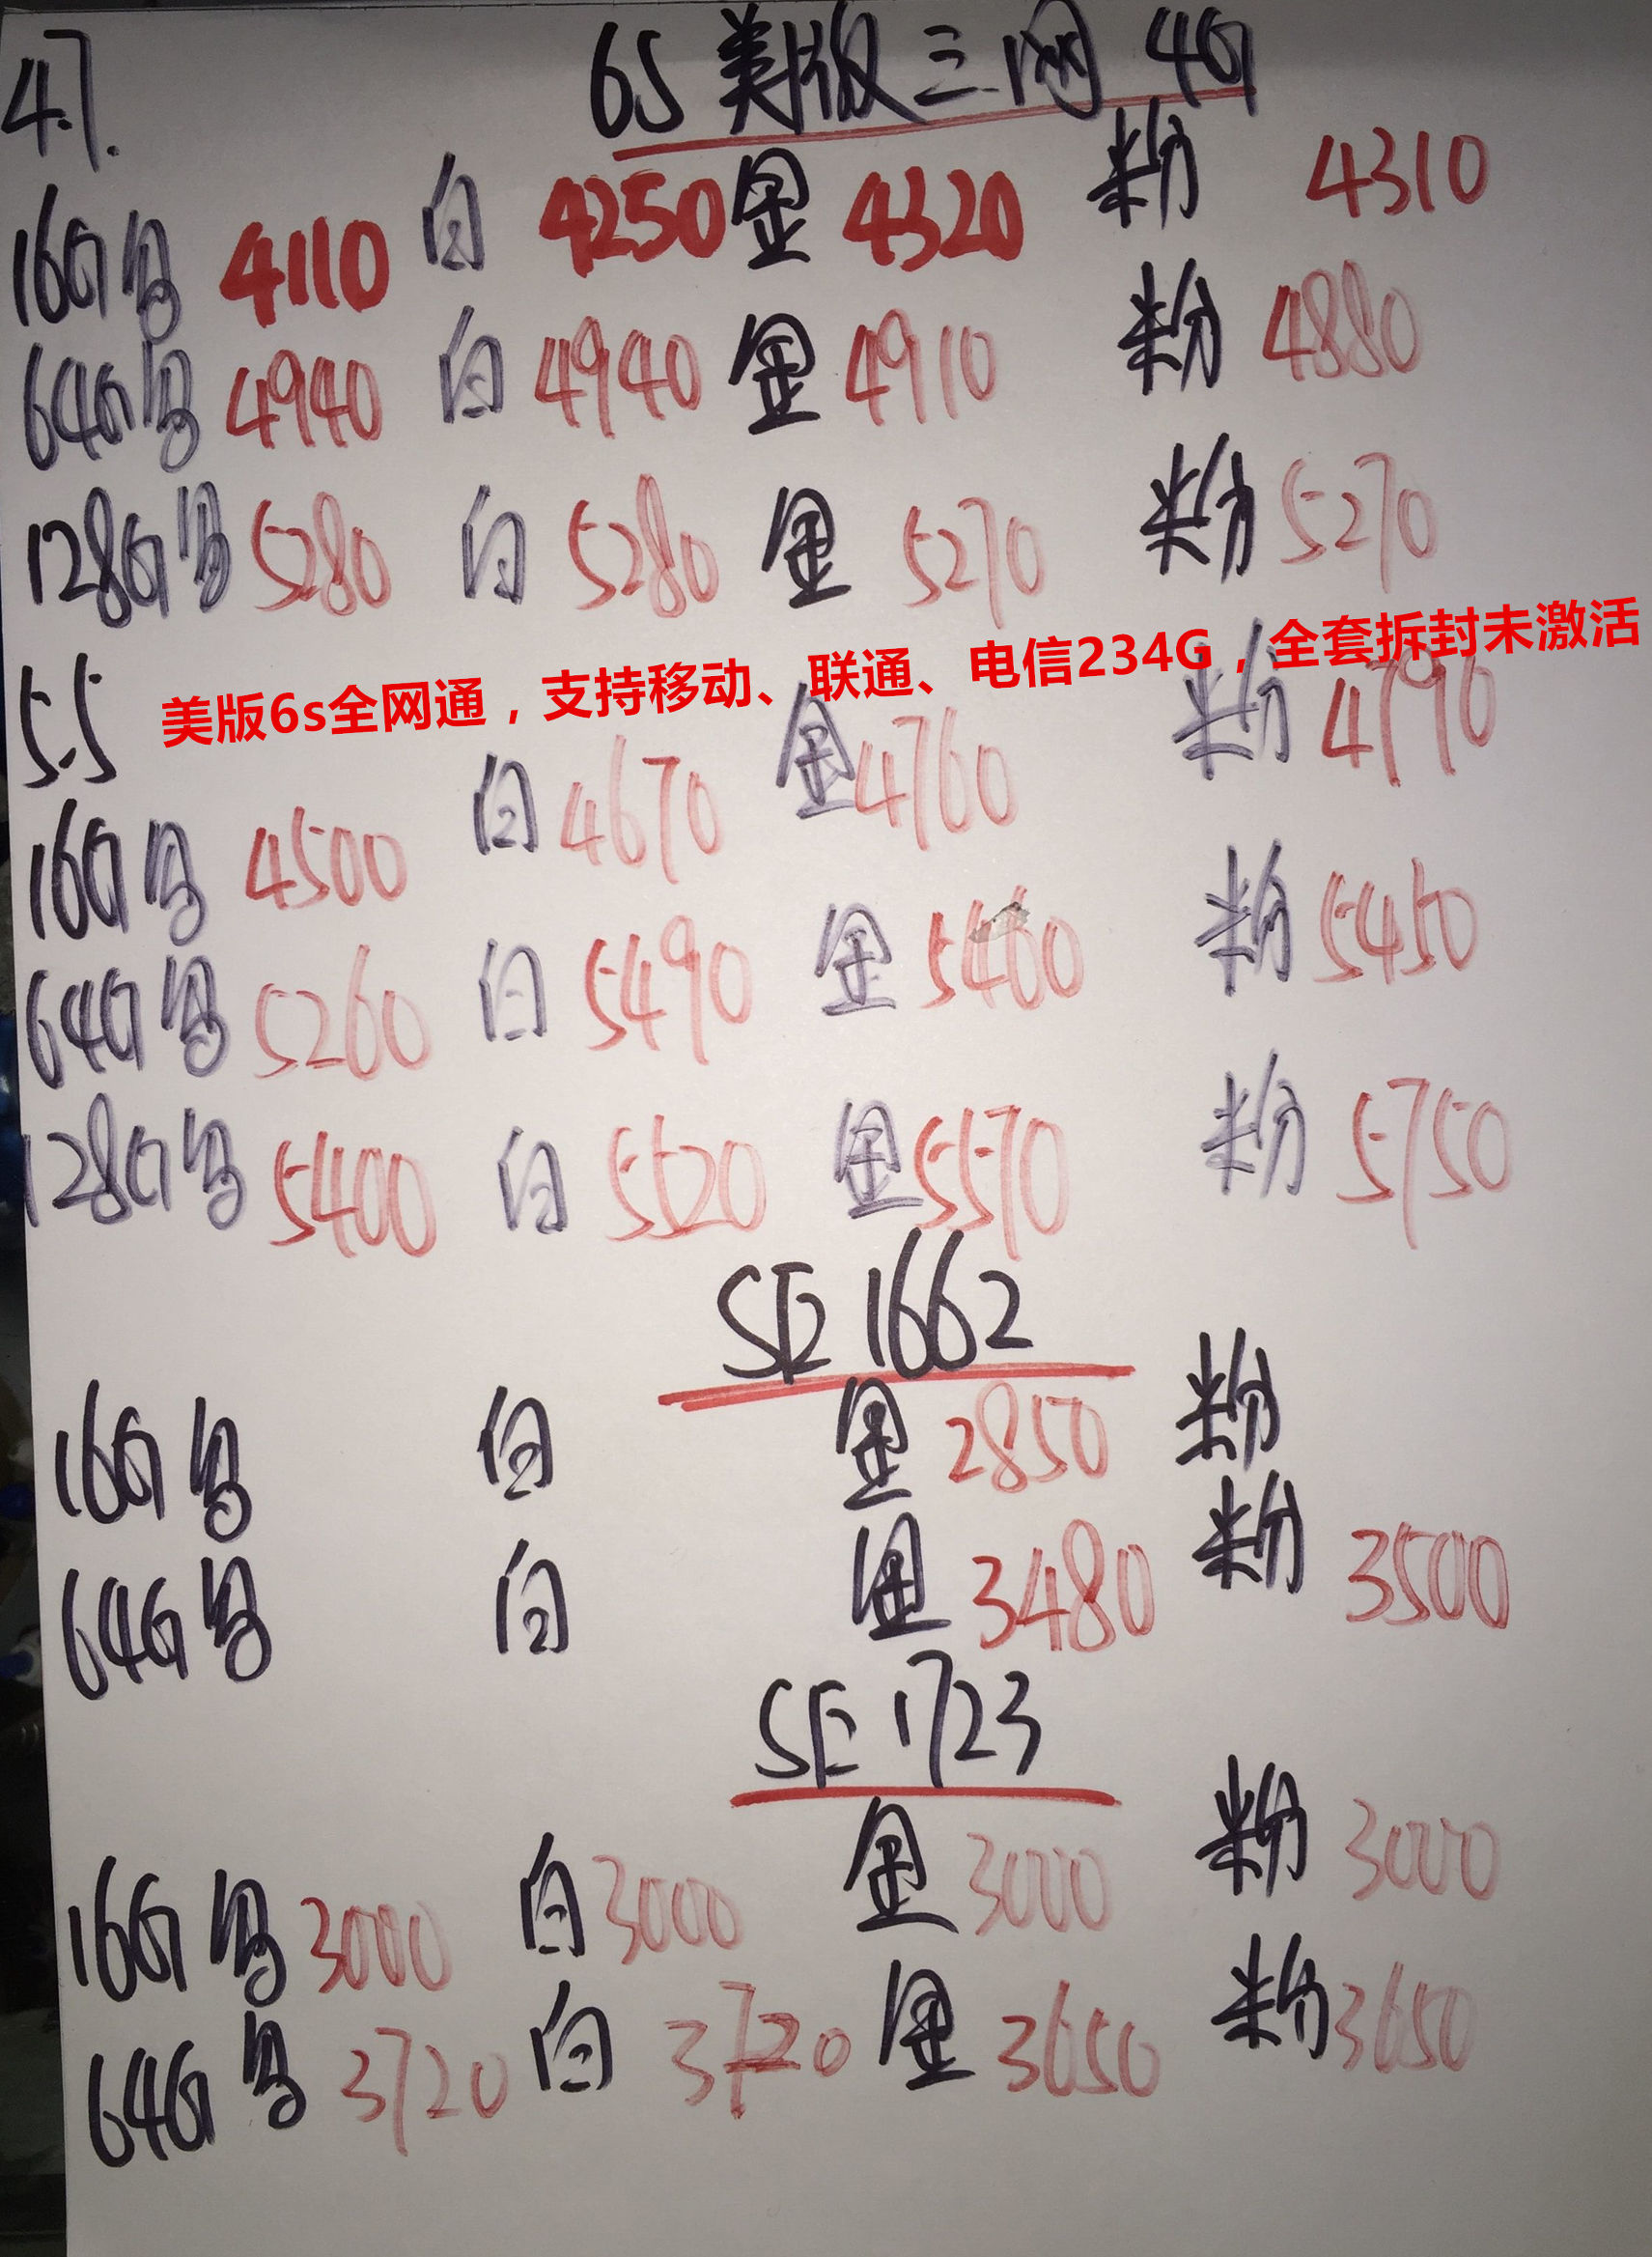 6S美版三网4G
4.7.
16G 白 4250 金 4320 粉 4310
4110
64G 4940 白 4940 金 4910 粉 4880
128G 5280 白 5280 金 5270 粉 5270
美版6s全网通，支持移动、联通、电信234G，全套拆封未激活
5.5
16G 4500 白 4670 金 4760 粉 4790
64G 5260 白 5490 金 5460 粉 5450
128G 5400 白 5520 金 5570 粉 5750
SE 1662
16G 白 金 2850 粉
64G 白 金 3480 粉 3500
SE 1723
16G 3000 白 3000 金 3000 粉 3000
64G 3720 白 3720 金 3650 粉 3650